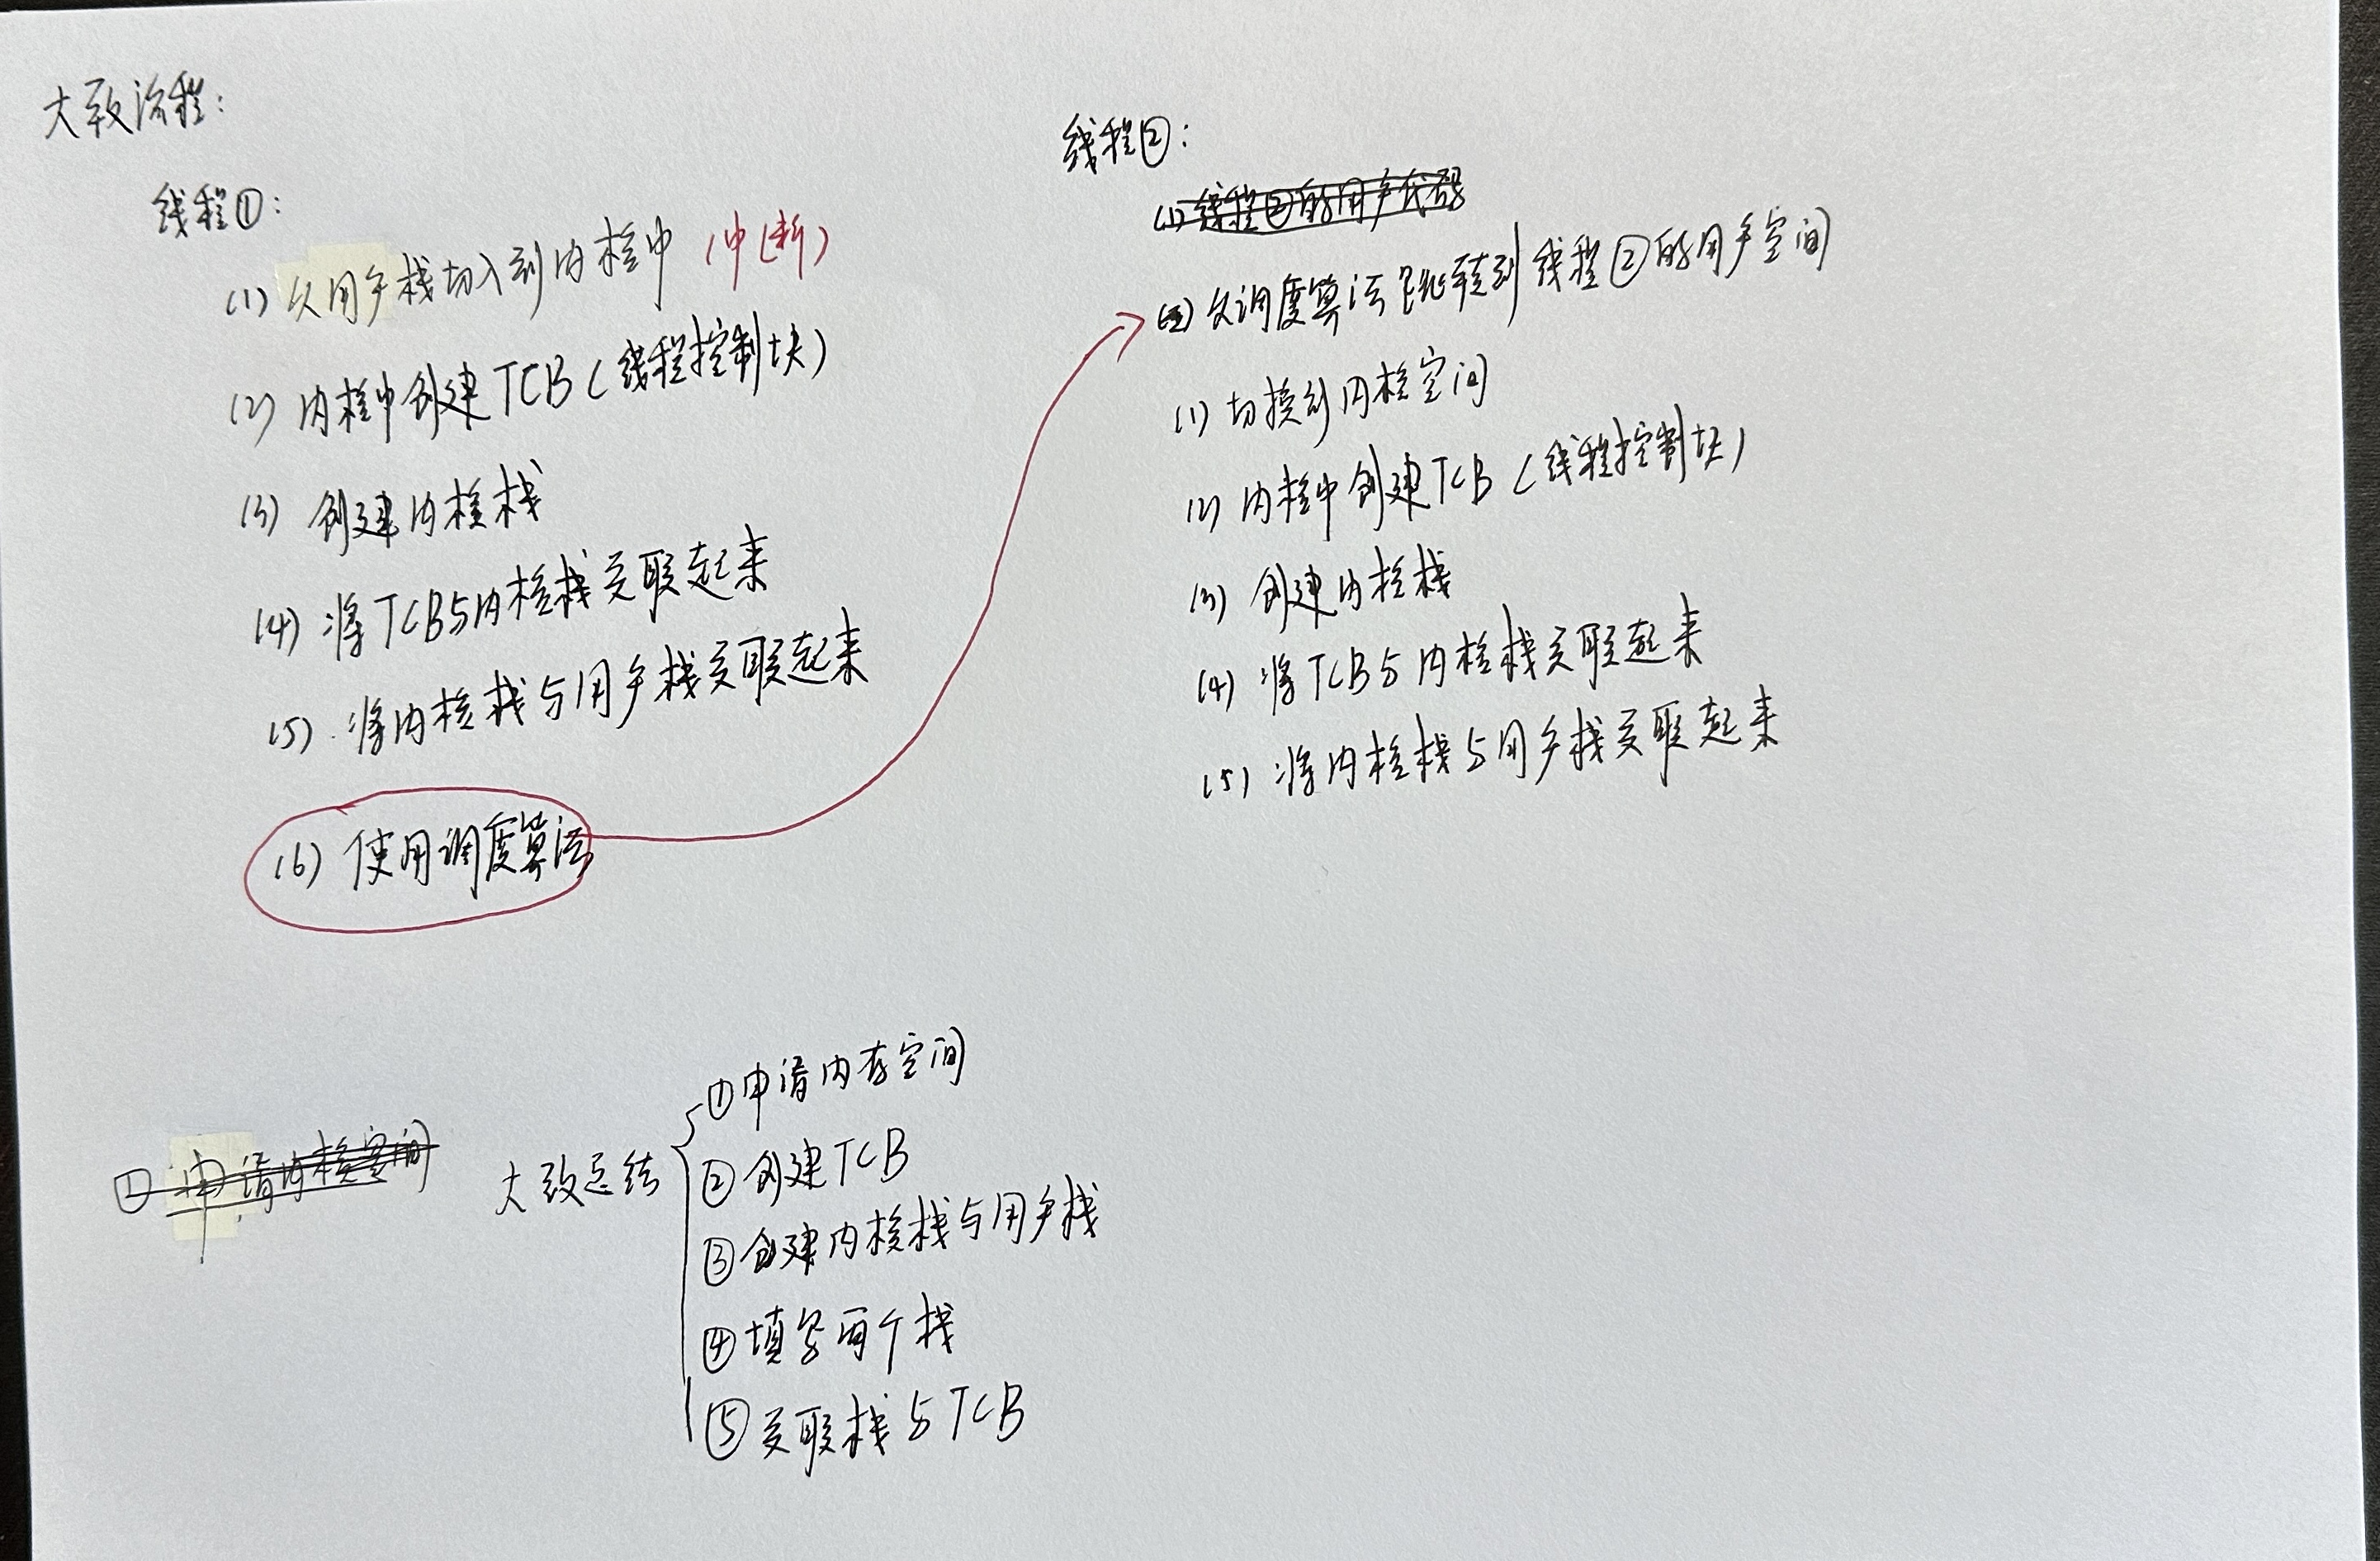 大致流程：
线程①：
(1) 从用户栈切入到内核中 (中断)
(2) 内核中创建TCB (线程控制块)
(3) 创建内核栈
(4) 将TCB与内核栈关联起来
(5) 将内核栈与用户栈关联起来
(6) 使用调度算法
线程②：
(1) 线程②的用户代码
从调度算法跳转到线程②的用户空间
(1) 切换到内核空间
(2) 内核中创建TCB (线程控制块)
(3) 创建内核栈
(4) 将TCB与内核栈关联起来
(5) 将内核栈与用户栈关联起来
① 申请内核空间
大致总结
①申请内存空间
②创建TCB
③创建内核栈与用户栈
④填写两个栈
⑤关联栈与TCB